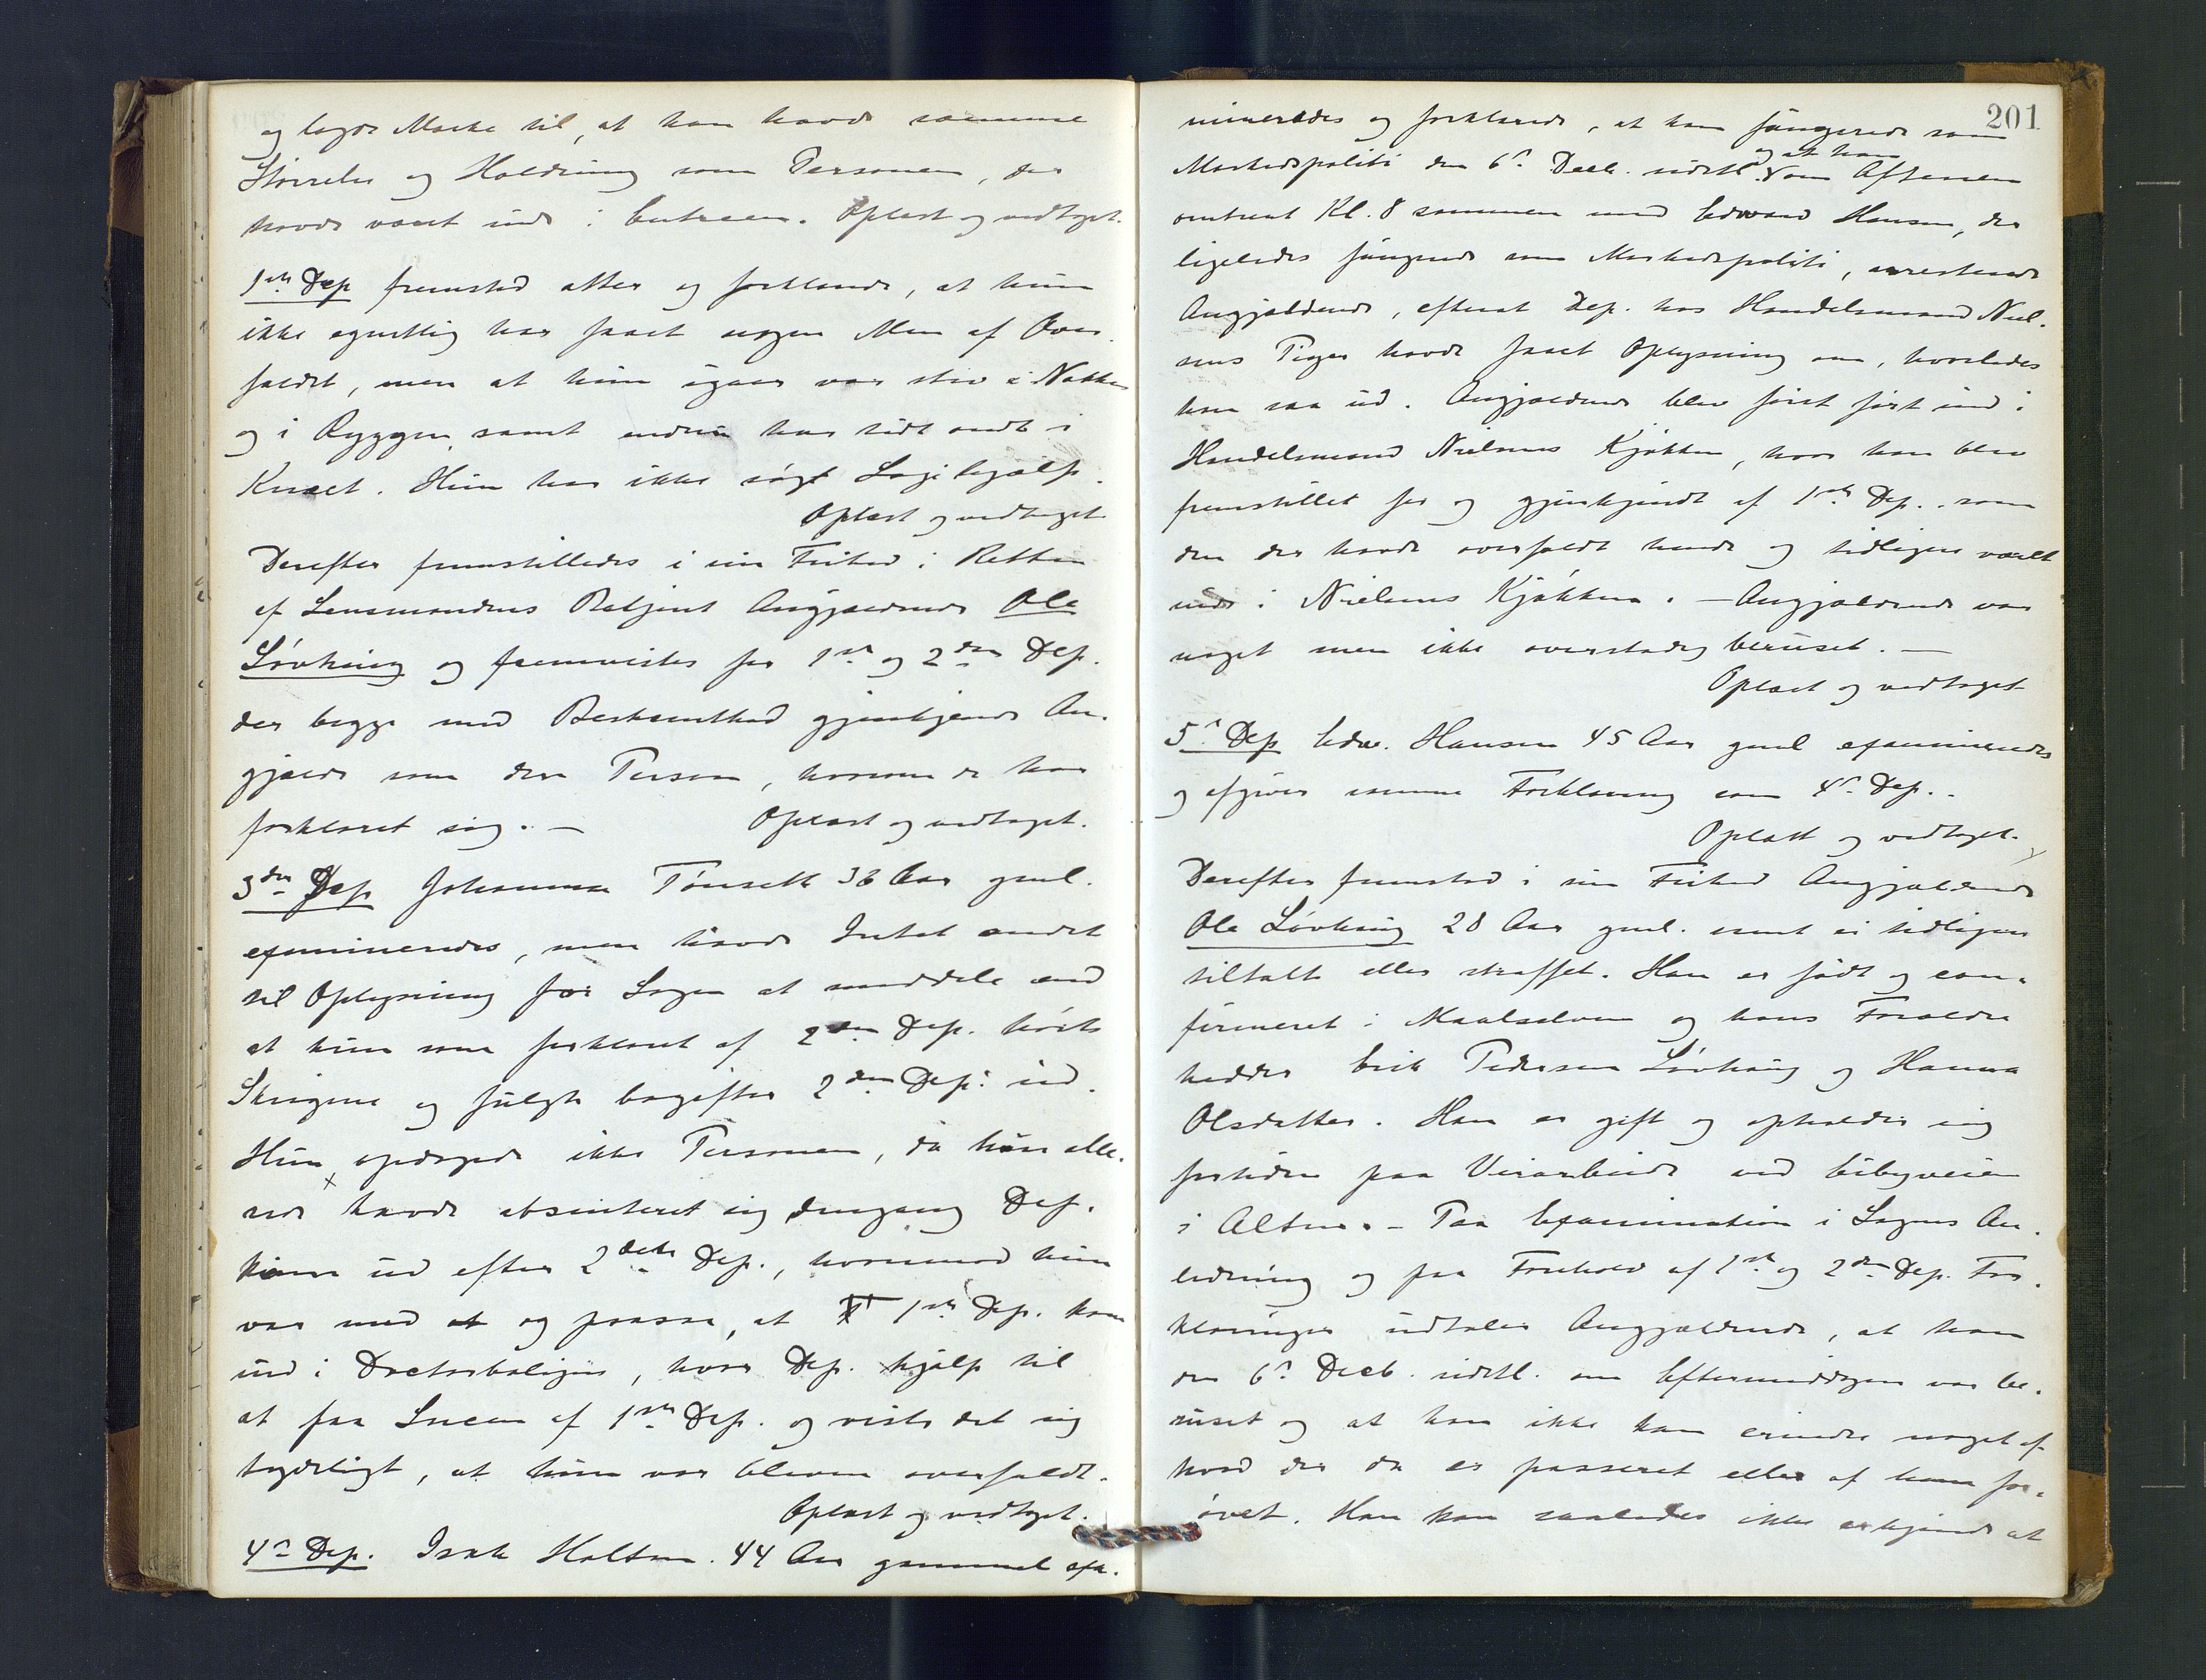 og lagde Mærke til, at han havde samme
Størrelse og Holdning som Personen, der
havde været inde i Entreen. Oplæst og vedtaget.
1ste Dep fremstod atter og forklarede, at hun
ikke egentlig har faaet nogen Men af Over-
faldet, men at hun igaar var stiv i Nakken
og i Ryggen, samt endnu har lidt ondt i
Knæet. Hun har ikke søgt Lægehjælp.
Oplæst og vedtaget
Derefter fremstilledes i sin Frihed i Retten
af Lensmandens Betjent Angjældende Ole
Løvhaug og fremvistes for 1ste og 2den Dep.
der begge med Bestemthed gjenkjende An-
gjæld. som den Person, hvorom de har
forklaret sig. — Oplæst og vedtaget.
3die Dep Johanna Tønseth 36 Aar gml.
examineredes, men havde Intet andet
til Oplysning for Sagen at meddele end
at hun som forklaret af 2den Dep. hørte
Skrigene og fulgte bagefter 2den Dep. ud.
Hun opdagede ikke Personen, da han alle-
rede havde absenteret sig dengang Dep.
kom ud efter 2den Dep., hvorimod hun
var med at og passe, at 1ste Dep. kom
ind i Doctorboligen, hvor Dep. hjalp til
at faa Sneen af 1ste Dep. og viste det sig
tydeligt, at hun var bleven overfaldt.
Oplæst og vedtaget.
4de Dep. Isak Holten. 44 Aar gammel exa-
201
mineredes og forklarede, at han fungerede som
og at han
Markedspoliti den 6te Decb. sidstl. om Aftenen
omtrent Kl. 8 sammen med Edvard Hansen, der
ligeledes fungerede som Markedspoliti, arresterede
Angjældende, efterat Dep. hos Handelsmand Niel-
sens Piger havde faaet Oplysning om, hvorledes
han saa ud. Angjældende blev først ført ind i
Handelsmand Nielsens Kjøkken, hvor han blev
fremstillet for og gjenkjendt af 1ste Dep. som
den der havde overfaldt hende og tidligere været
inde i Nielsens Kjøkken. — Angjældende var
noget men ikke overstadig beruset. —
Oplæst og vedtaget
5te Dep Edv. Hansen 45 Aar gml examineredes
og afgiver samme Forklaring som 4de Dep.
Oplæst og vedtaget.
Derefter fremstod i sin Frihed Angjældende
Ole Løvhaug 28 Aar gml. samt ei tidligere
tiltalt eller straffet. Han er født og con-
firmeret i Maalselven og hans Forældre
hedder Erik Pedersen Løvhaug og Hanna
Olsdatter. Han er gift og opholder sig
fortiden paa Veiarbeide ved Eibyveien
i Alten. – Paa Examination i Sagens An-
ledning og paa Forehold af 1ste og 2den Dep. For-
klaringer udtaler Angjældende, at han
den 6te Decb. sidstl. om Eftermiddagen var be-
ruset og at han ikke kan erindre noget af
hvad der da er passeret eller af ham for-
øvet. Han kan saaledes ikke erkjende at